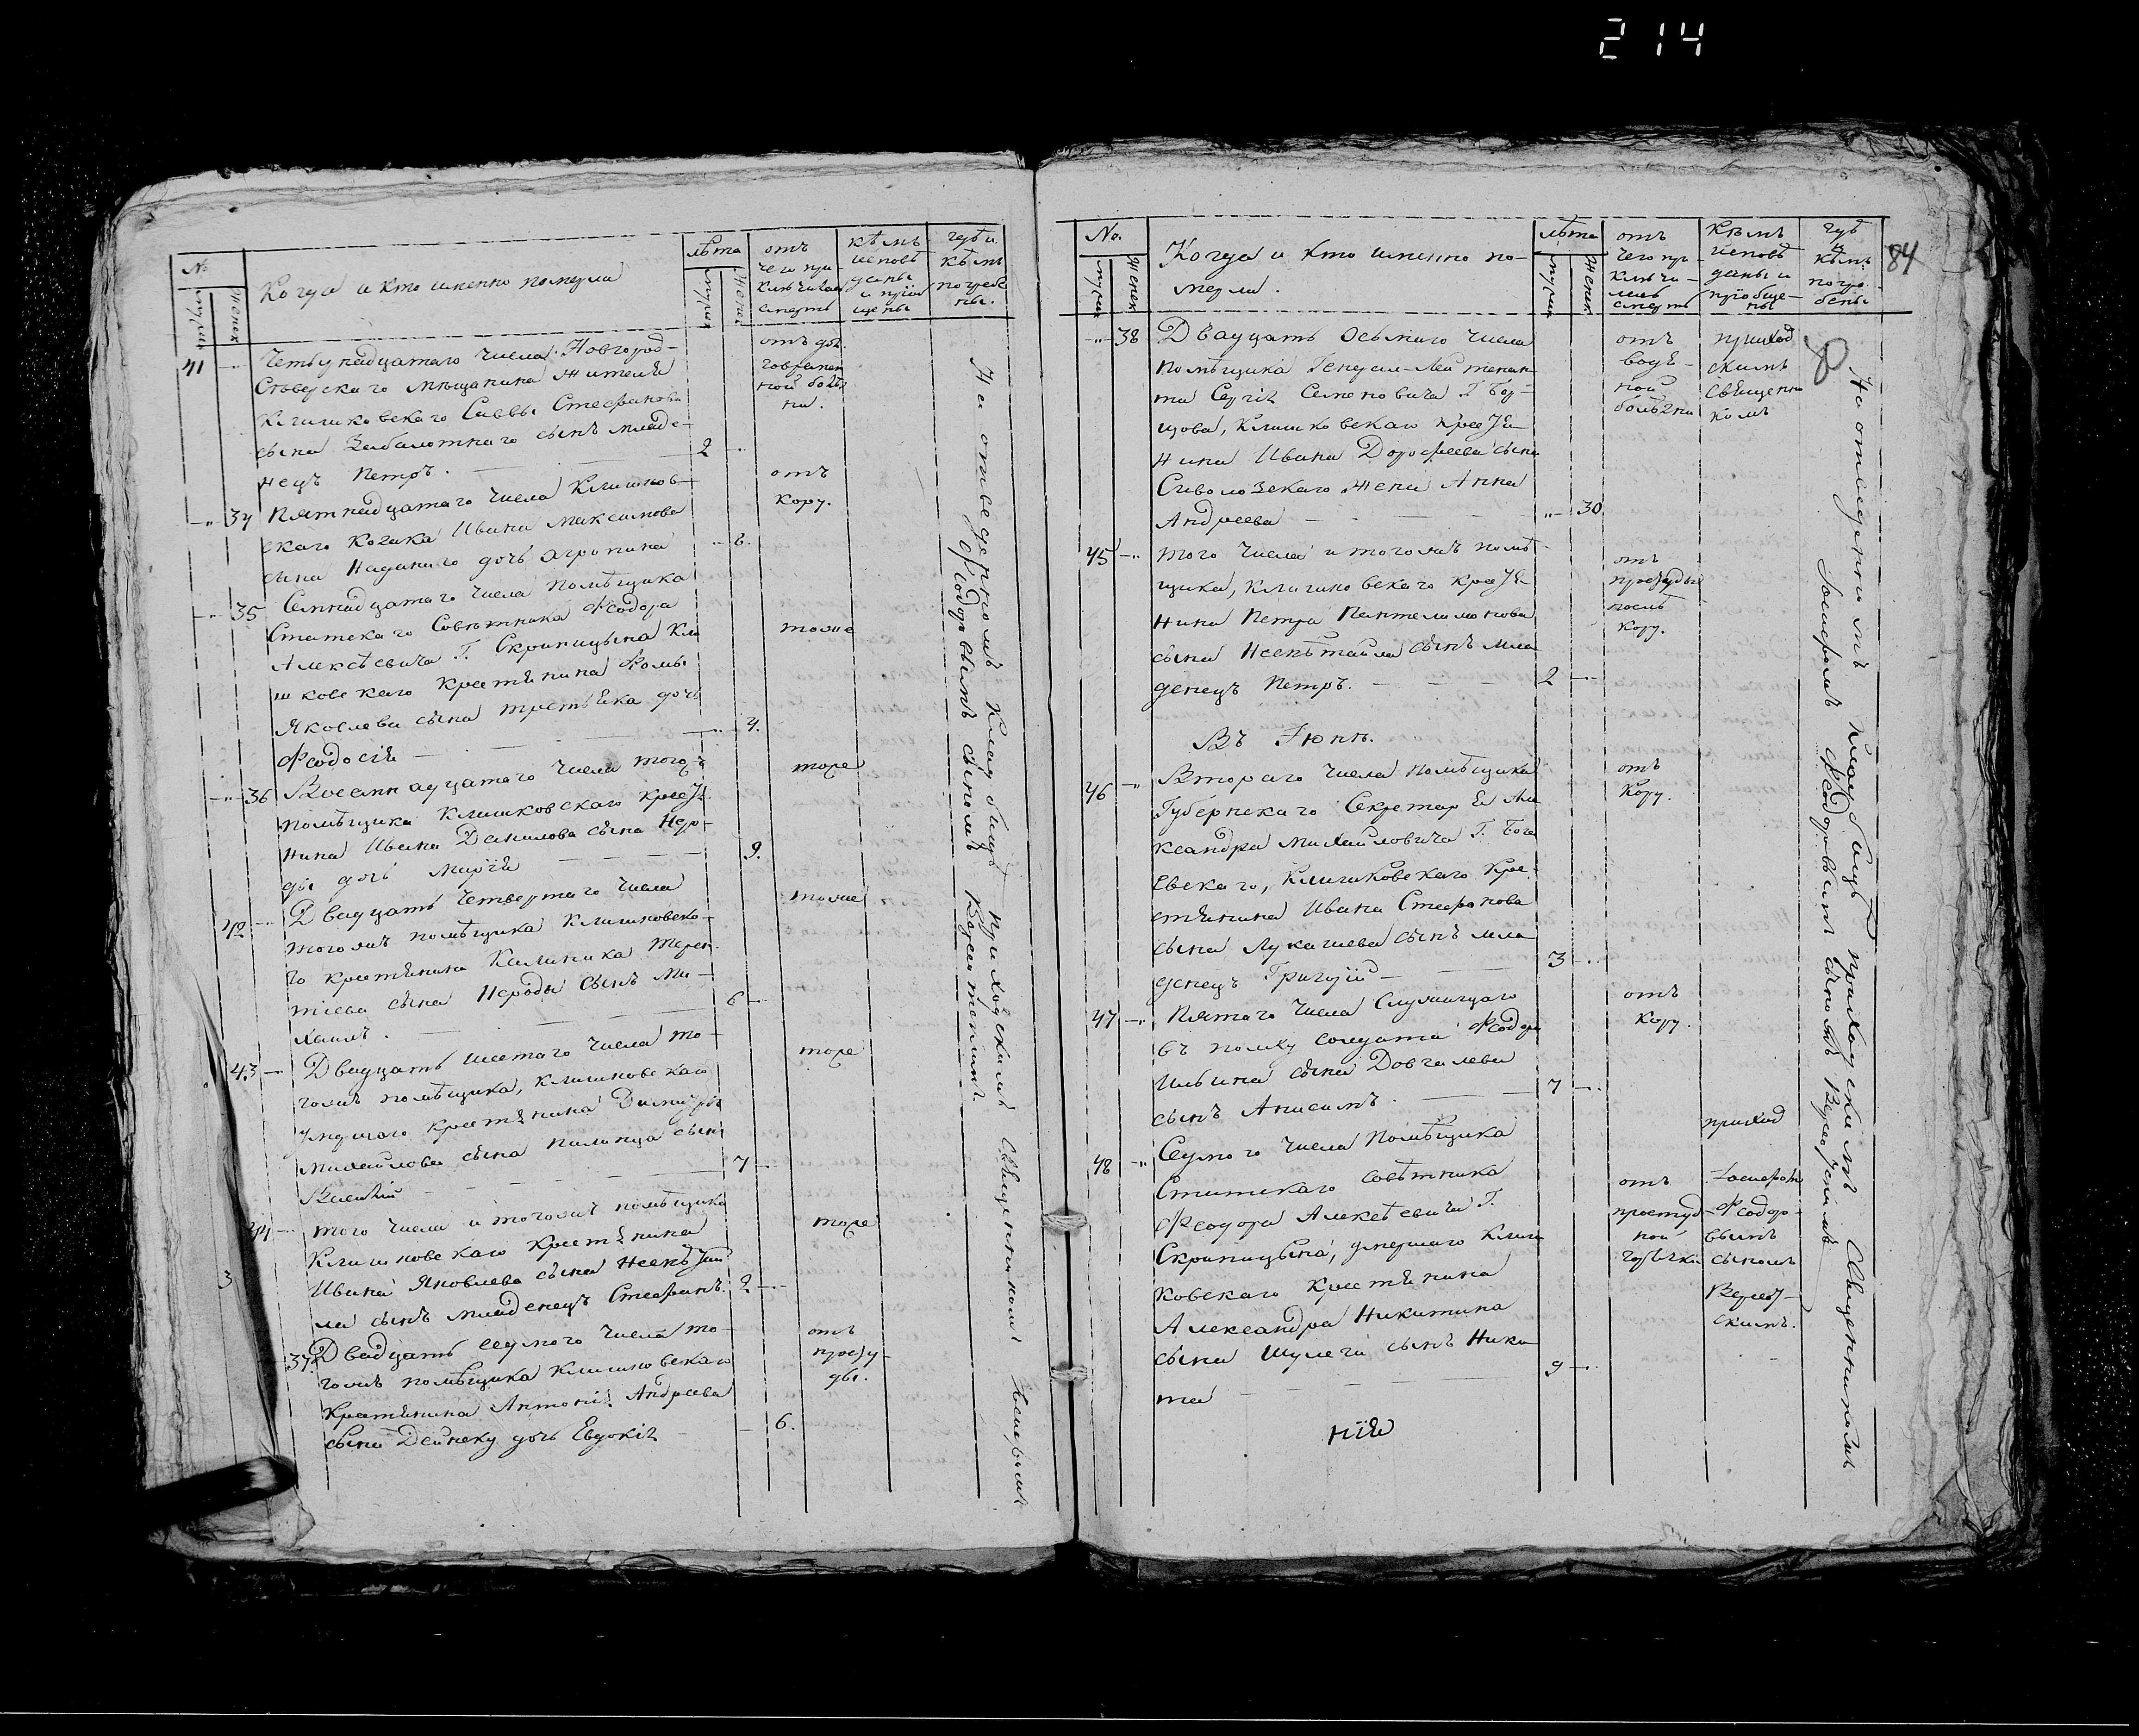 214
№
мужеск
женск
Когда и кто именно померли
лѣта
мужеск
женск
отъ
чего при-
ключилась
смерть
кѣмъ
исповѣ
даны
и пріоб
щены
гдѣ и
кѣмъ
погребе
ны.
41
Четырнадцатаго числа Новгород-
Сѣверскаго мѣщанина жителя
Клишковскаго Саввы Стефанова
сына Заболотнаго сынъ младе-
нецъ Петръ.
2
ной болѣз
ни.
34
Пятнадцатаго числа Клишков-
скаго козака Ивана Максимова
сына дочь Агрипина
отъ
кору.
35
Семнадцатаго числа помѣщика
Статскаго Совѣтника Ѳеодора
Алексѣевича Г. Скрипицына Кли
шковскаго крестьянина Ѳомы
Яковлева сына Третьяка дочь
Ѳеодосія
4.
тоже
36
Восемнадцатаго числа того жъ
помѣщика Клишковскаго крестья
нина Ивана Данилова сына Неро-
ды дочь Марія
9.
тоже
42
Двадцать четвертаго числа
тогожъ помѣщика Клишковска-
го крестьянина Калиника Терен
тіева сына Нероды сынъ Ми-
хаилъ.
6
тоже
43
Двадцать шестаго числа то-
гожъ помѣщика, Клишковскаго
умершаго крестьянина Димитрія
Михайлова сына Пилипца сынъ
Василій
7
тоже
44
того числа и тогожъ помѣщика
Клишковскаго крестьянина
Ивана Яковлева сына Неенѣтай
ла сынъ младенецъ Стефанъ.
2
тоже
3
37
Двадцать седмого числа то-
гожъ помѣщика Клишковскаго
крестьянина Антонія Андреева
сына Дейнеку дочь Евдокія
6.
отъ
просту-
ды.
На отведенномъ кладбищѣ приходскимъ Священникомъ Іосифомъ
Ѳеодоровымъ сыномъ
№.
мужеск
женск
Когда и кто именно по-
мерли.
лѣта
мужеск
женск
отъ
чего при-
ключи-
лась
смерть
кѣмъ
исповѣ
даны и
пріобще-
ны
гдѣ
и
кѣмъ
погре-
бены
84
38
Двадцать осьмого числа
помѣщика Генерал-Лейтенан
та Сергія Семеновича Г.
Клишковскаго крестья
нина Ивана Дорофеева сына
Сиволозскаго жена Анна
Андреева
30
отъ
водя-
ной
болѣзни
приход
скимъ
священни
комъ
45
того числа и тогожъ помѣ-
щика, Клишковскаго крестья
нина Петра Пантелимонова
сына Неенѣтайла сынъ мла
денецъ Петръ.
2
отъ
простуды
послѣ
кору.
Въ Іюнѣ.
46
Втораго числа помѣщика
Губернскаго Секретаря Але
ксандра Михайловича Г. Бога
евскаго, Клишковскаго кре-
стьянина Ивана Стефанова
сына Лукашева сынъ мла
денецъ Григорій
3
отъ
кору.
47
Пятаго числа служащаго
въ полку солдата Ѳеодора
Ильина сына Довгалева
сынъ Анисимъ.
7
отъ
кору.
48
Седмого числа помѣщика
Статскаго совѣтника
Ѳеодора Алексѣевича Г.
Скрипицына, умершаго Клиш
ковскаго крестьянина
Александра Никитина
сына Шулеги сынъ Ники
та
9
отъ
простуд-
ной
горячки
приход
Іосифомъ
Ѳеодоро-
вымъ
сыномъ
нія
На отведенномъ кладбищѣ приходскимъ Священникомъ
Іосифомъ Ѳеодоровымъ сыномъ